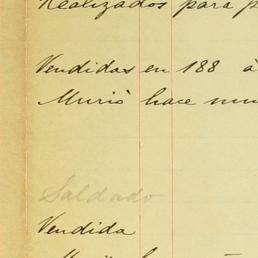 Realizados para p
Vendidas en 188 à
Murió hace mu
Saldado
Vendida